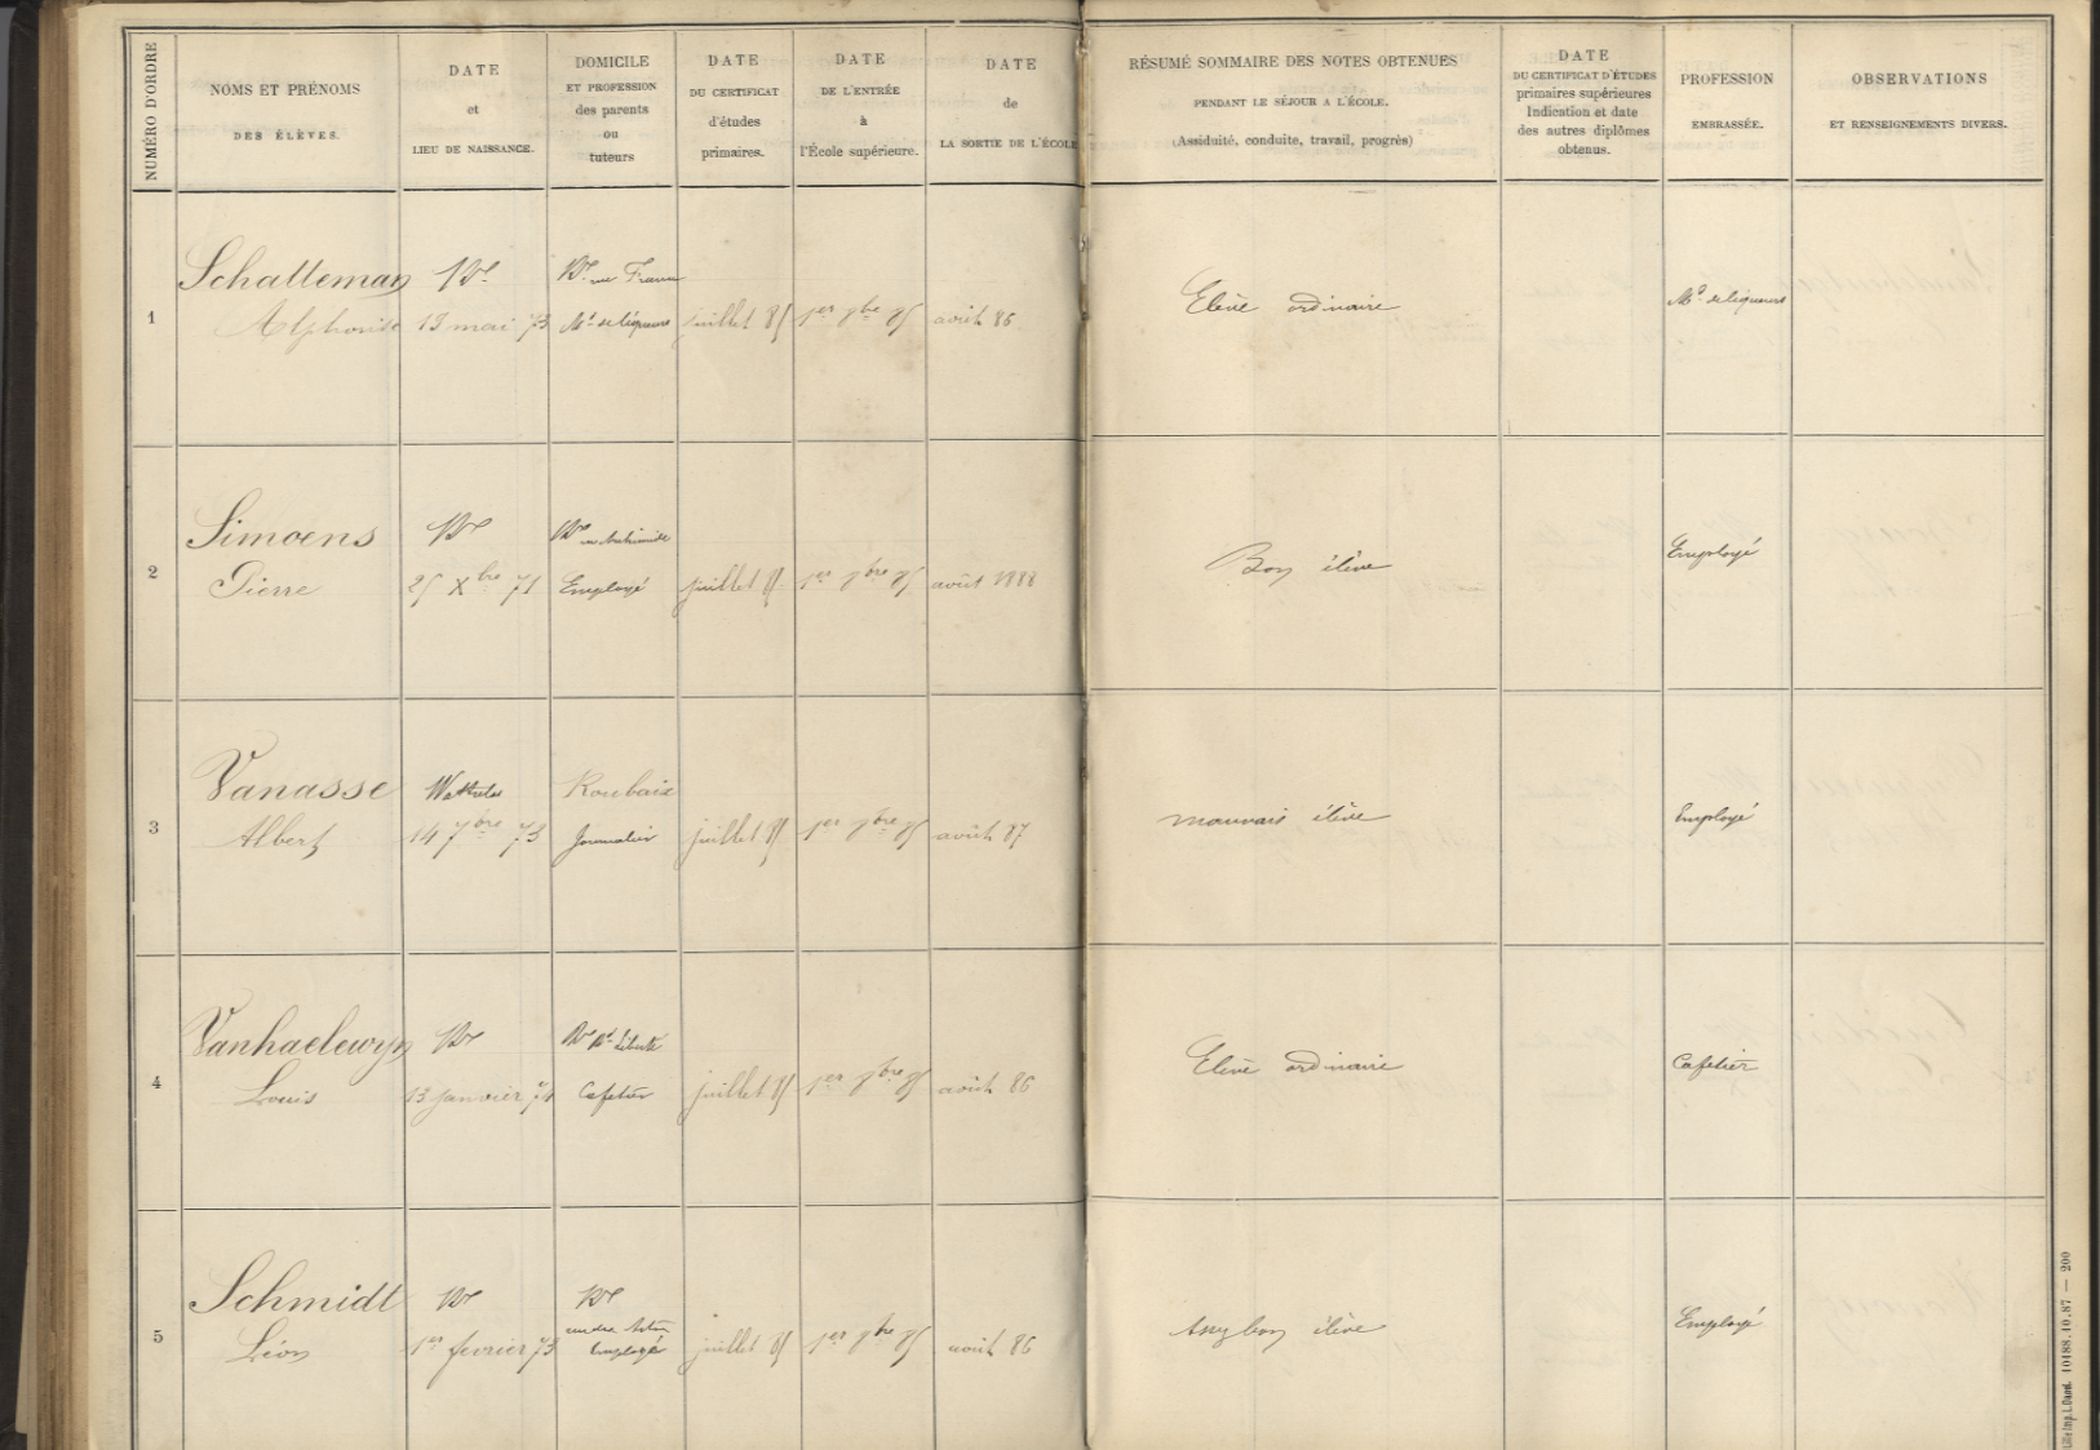 NUMÉRO D'ORDRE
NOMS ET PRÉNOMS
DES ÉLÈVES.
DATE
et
LIEU DE NAISSANCE.
DOMICILE
ET PROFESSION
des parents
ou
tuteurs
DATE
DU CERTIFICAT
d'études
primaires.
DATE
DE L'ENTRÉE
à
l'École supérieure.
DATE
de
LA SORTIE DE L'ÉCOLE
RÉSUMÉ SOMMAIRE DES NOTES OBTENUES
PENDANT LE SÉJOUR A L'ÉCOLE.
(Assiduité, conduite, travail, progrès)
DATE
DU CERTIFICAT D'ÉTUDES
primaires supérieures
Indication et date
des autres diplômes
obtenus.
PROFESSION
EMBRASSÉE.
OBSERVATIONS
ET RENSEIGNEMENTS DIVERS.
1
Schatteman
Alphonse
Rx
13 mai 73
Rx rue
Md de liqueurs
juillet 85
1er 8bre 85
août 86
Elève ordinaire
Md de liqueurs
2
Simoens
Pierre
Rx
25 Xbre 71
Rx rue Archimède
Employé
juillet 85
1er 8bre 85
août 1888
Bon élève
Employé
3
Vanasse
Albert
Wattrelos
14 7bre 73
Roubaix
Journalier
juillet 85
1er 8bre 85
août 87
mauvais élève
Employé
4
Vanhaelewyn
Louis
Rx
13 janvier 71
Rx Bd Liberté
Cafetier
juillet 85
1er 8bre 85
août 86
Elève ordinaire
Cafetier
5
Schmidt
Léon
Rx
1er fevrier 73
Rx
Employé
juillet 85
1er 8bre 85
août 86
Assez bon élève
Employé
Lille Imp. L. Danel. 10488.10.87 — 200